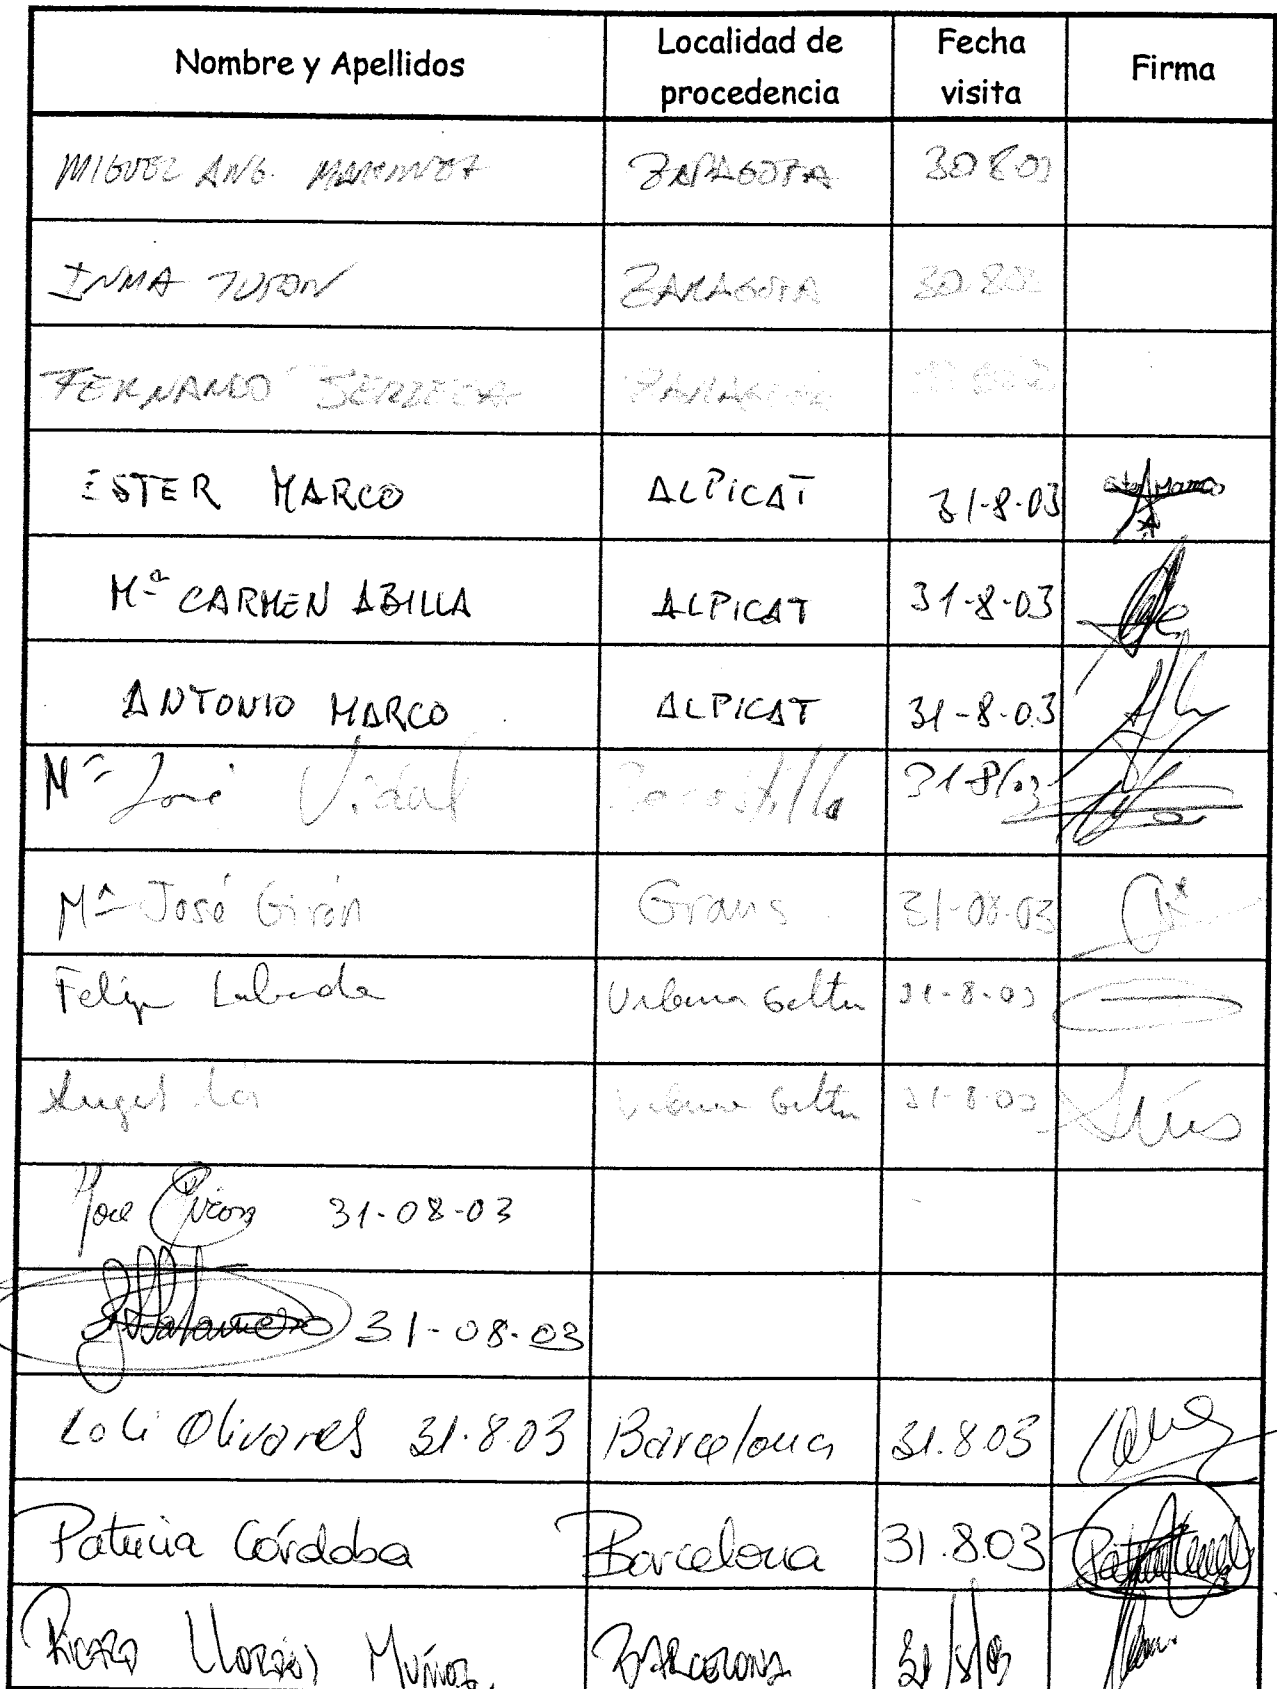 Nombre y Apellidos Localidad de procedencia Fecha visita Firma
MIGUEL ANG. MARTINEZ ZARAGOZA 30 8 03
INMA ZARAGOZA 30 8 03
FERNANDO
ESTER MARCO ALPICAT 31-8-03 Ester Marco
Mª CARMEN ABILLA ALPICAT 31-8-03
ANTONIO MARCO ALPICAT 31-8-03
Mª José Vidal 31-8/03
Mª José Girón Graus 31-08-03
Felipe 31-8-03
Angel 31-8-03
José Girón 31-08-03
31-08-03
Loli Olivares 31.8.03 Barcelona 31.8.03
Patricia Córdoba Barcelona 31.8.03
Muñoz BARCELONA 31/8/03